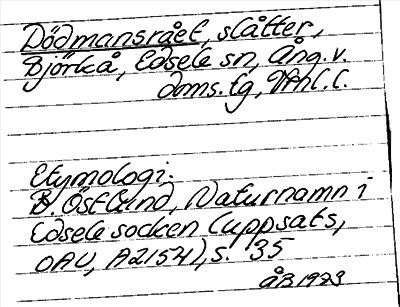 Dödmansrået, slåtter,
Björkå, Edsele sn, Ång. v.
doms.tg, Vnl. l.
Etymologi:
B. Östlund, Naturnamn i
Edsele socken (uppsats,
OAU, A2154), s. 35
ÅB 1973